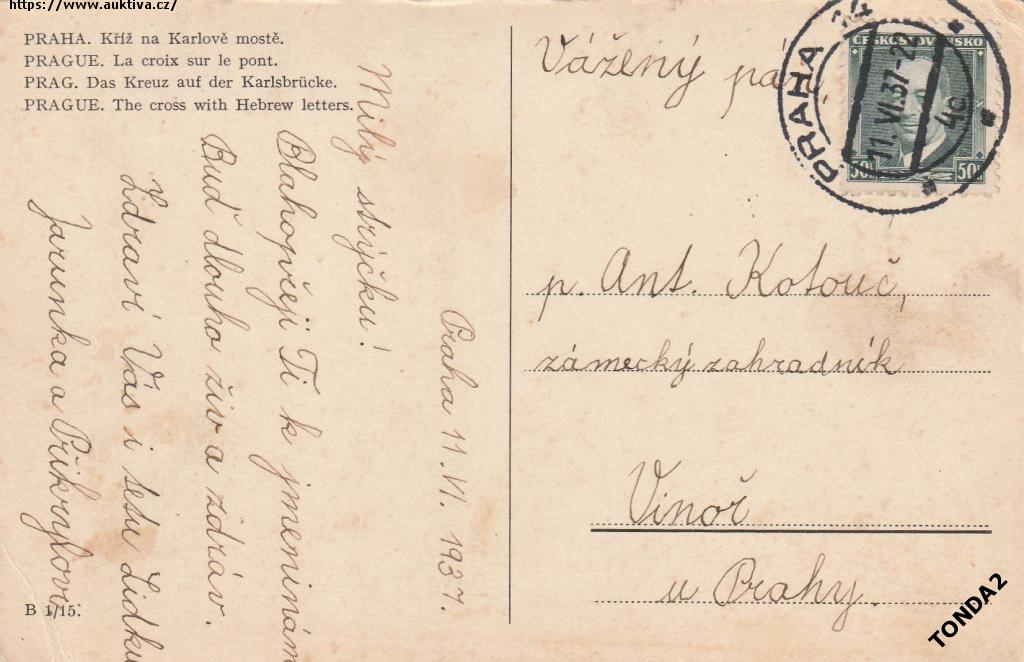 https://www.auktiva.cz/
PRAHA. Kříž na Karlově mostě.
PRAGUE. La croix sur le pont.
PRAG. Das Kreuz auf der Karlsbrücke.
PRAGUE. The cross with Hebrew letters.
Praha 11. VI. 1937.
Milý strýčku!
Blahopřeji Ti k jmeninám
Buď dlouho živ a zdráv.
Zdraví Vás i tetu Lidku
Jarunka a Přikrylovi
B 1/15.
Vážený pán
p. Ant. Kotouč,
zámecký zahradník
Vinoř
u Prahy.
PRAHA 14
11. VI. 37-22
4c
ČESKOSLOVENSKO
50h 50h
TONDA2